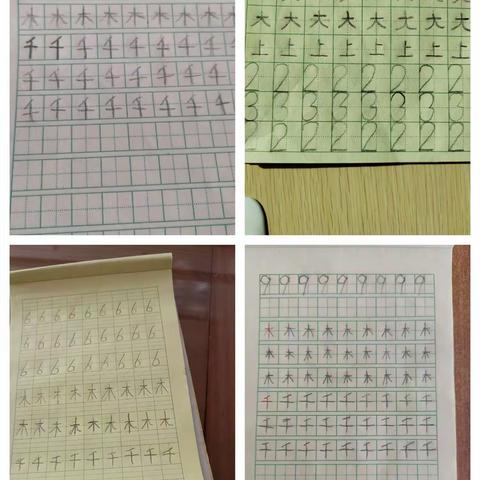 木木木木木木木木木
千千千千千千千千千
千千千千千千千千千
千千千千千千千千
大大大大大大大大
上上上上上上上上
22222222
33333333
22222222
666666666
666666666
666666666
木木木木木木木木木
木木木木木木木木木
千千千千千千千千千
999999999
木木木木木木木木木
木木木木木木木木木
木木木木木木木木木
千千千千千千千千千
千千千千千千千千千
千千千千千千千千千